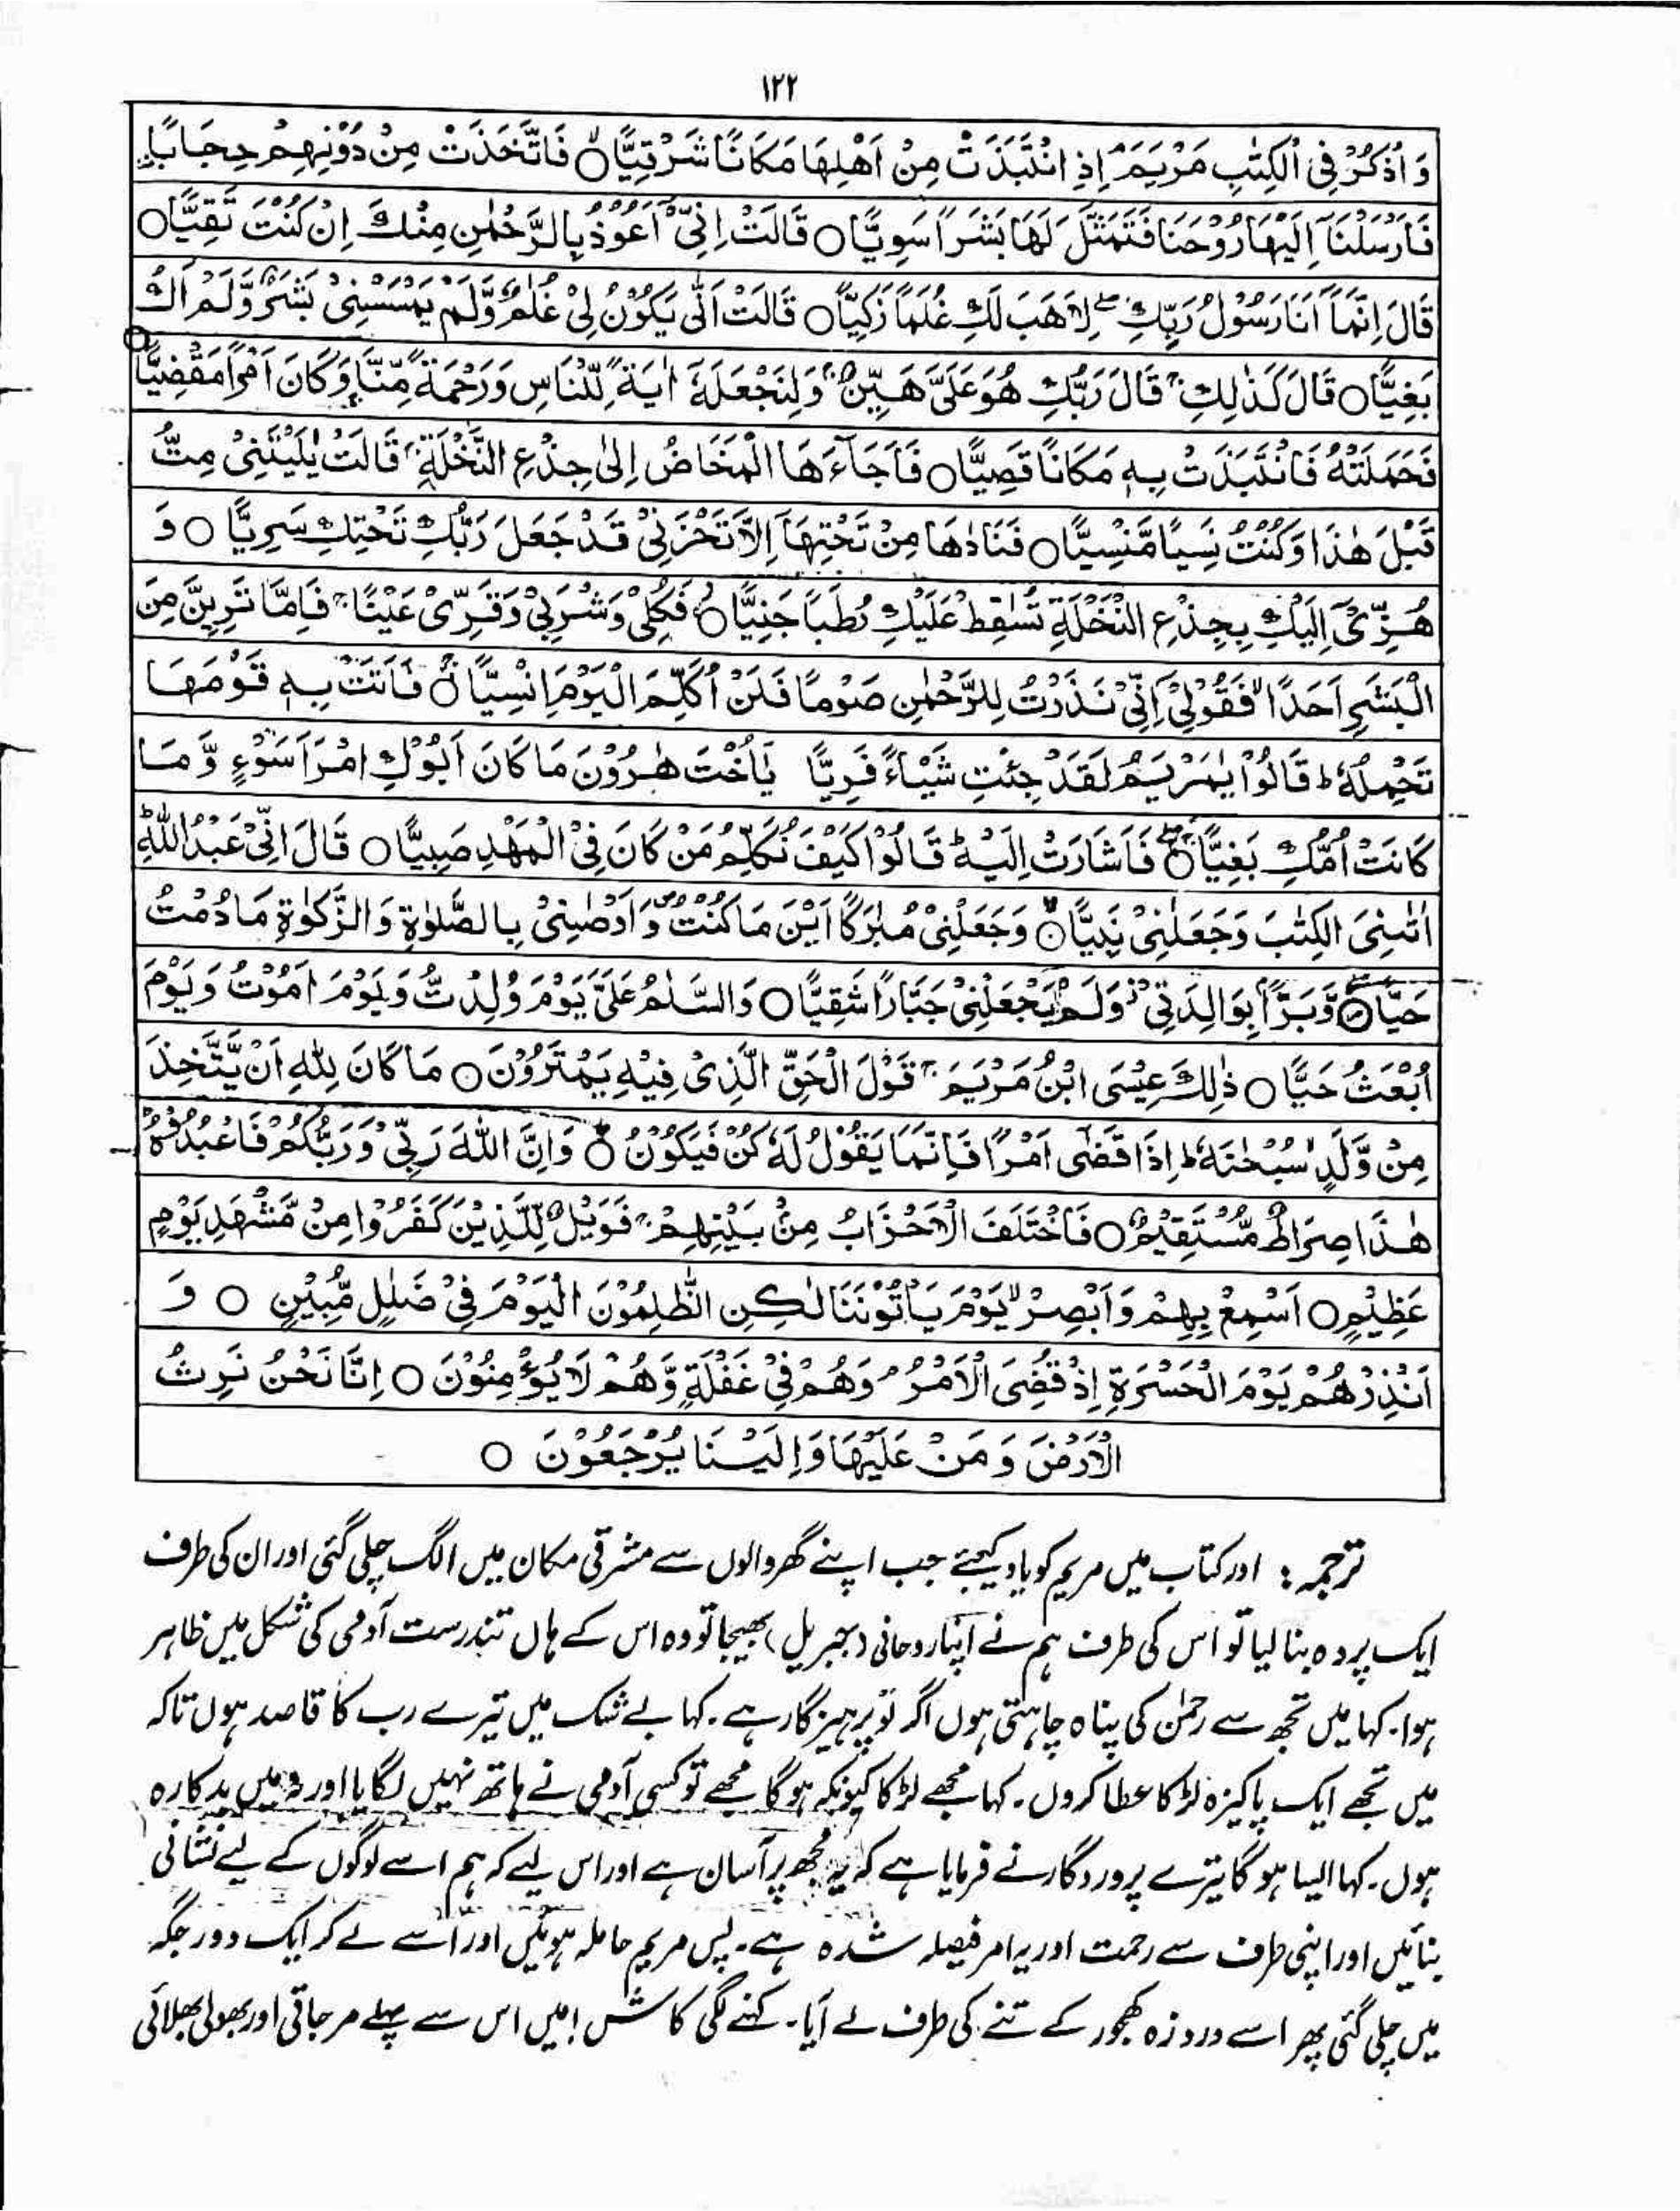 ۱۲۲
وَاذْكُرْ فِي الْكِتٰبِ مَرْيَمَ اِذِ انْتَبَذَتْ مِنْ اَهْلِهَا مَكَانًا شَرْقِيًّا ○ فَاتَّخَذَتْ مِنْ دُوْنِهِمْ حِجَابًا
فَاَرْسَلْنَآ اِلَيْهَا رُوْحَنَا فَتَمَثَّلَ لَهَا بَشَرًا سَوِيًّا ○ قَالَتْ اِنِّيْٓ اَعُوْذُ بِالرَّحْمٰنِ مِنْكَ اِنْ كُنْتَ تَقِيًّا ○
قَالَ اِنَّمَآ اَنَا رَسُوْلُ رَبِّكِ لِاَهَبَ لَكِ غُلٰمًا زَكِيًّا ○ قَالَتْ اَنّٰى يَكُوْنُ لِيْ غُلٰمٌ وَّلَمْ يَمْسَسْنِيْ بَشَرٌ وَّلَمْ اَكُ
بَغِيًّا ○ قَالَ كَذٰلِكِ قَالَ رَبُّكِ هُوَ عَلَيَّ هَيِّنٌ وَلِنَجْعَلَهٗٓ اٰيَةً لِّلنَّاسِ وَرَحْمَةً مِّنَّا وَكَانَ اَمْرًا مَّقْضِيًّا ○
فَحَمَلَتْهُ فَانْتَبَذَتْ بِهٖ مَكَانًا قَصِيًّا ○ فَاَجَآءَهَا الْمَخَاضُ اِلٰى جِذْعِ النَّخْلَةِ قَالَتْ يٰلَيْتَنِيْ مِتُّ
قَبْلَ هٰذَا وَكُنْتُ نَسِيًا مَّنْسِيًّا ○ فَنَادٰهَا مِنْ تَحْتِهَآ اِلَّا تَحْزَنِيْ قَدْ جَعَلَ رَبُّكِ تَحْتِكِ سَرِيًّا ○ وَ
هُزِّيْٓ اِلَيْكِ بِجِذْعِ النَّخْلَةِ تُسٰقِطْ عَلَيْكِ رُطَبًا جَنِيًّا ○ فَكُلِيْ وَشْرَبِيْ وَقَرِّيْ عَيْنًا فَاِمَّا تَرَيِنَّ مِنَ
الْبَشَرِ اَحَدًا فَقُوْلِيْٓ اِنِّيْ نَذَرْتُ لِلرَّحْمٰنِ صَوْمًا فَلَنْ اُكَلِّمَ الْيَوْمَ اِنْسِيًّا ○ فَاَتَتْ بِهٖ قَوْمَهَا
تَحْمِلُهٗ ط قَالُوْا يٰمَرْيَمُ لَقَدْ جِئْتِ شَيْـًٔا فَرِيًّا يٰٓاُخْتَ هٰرُوْنَ مَا كَانَ اَبُوْكِ امْرَاَ سَوْءٍ وَّمَا
كَانَتْ اُمُّكِ بَغِيًّا ○ فَاَشَارَتْ اِلَيْهِ ط قَالُوْا كَيْفَ نُكَلِّمُ مَنْ كَانَ فِي الْمَهْدِ صَبِيًّا ○ قَالَ اِنِّيْ عَبْدُ اللّٰهِ ط
اٰتٰىنِيَ الْكِتٰبَ وَجَعَلَنِيْ نَبِيًّا ○ وَجَعَلَنِيْ مُبٰرَكًا اَيْنَ مَا كُنْتُ وَاَوْصٰنِيْ بِالصَّلٰوةِ وَالزَّكٰوةِ مَا دُمْتُ
حَيًّا ○ وَّبَرًّا بِوَالِدَتِيْ وَلَمْ يَجْعَلْنِيْ جَبَّارًا شَقِيًّا ○ وَالسَّلٰمُ عَلَيَّ يَوْمَ وُلِدْتُّ وَيَوْمَ اَمُوْتُ وَيَوْمَ
اُبْعَثُ حَيًّا ○ ذٰلِكَ عِيْسَى ابْنُ مَرْيَمَ قَوْلَ الْحَقِّ الَّذِيْ فِيْهِ يَمْتَرُوْنَ ○ مَا كَانَ لِلّٰهِ اَنْ يَّتَّخِذَ
مِنْ وَّلَدٍ سُبْحٰنَهٗ ط اِذَا قَضٰٓى اَمْرًا فَاِنَّمَا يَقُوْلُ لَهٗ كُنْ فَيَكُوْنُ ○ وَاِنَّ اللّٰهَ رَبِّيْ وَرَبُّكُمْ فَاعْبُدُوْهُ ط
هٰذَا صِرَاطٌ مُّسْتَقِيْمٌ ○ فَاخْتَلَفَ الْاَحْزَابُ مِنْۢ بَيْنِهِمْ فَوَيْلٌ لِّلَّذِيْنَ كَفَرُوْا مِنْ مَّشْهَدِ يَوْمٍ
عَظِيْمٍ ○ اَسْمِعْ بِهِمْ وَاَبْصِرْ يَوْمَ يَاْتُوْنَنَا لٰكِنِ الظّٰلِمُوْنَ الْيَوْمَ فِيْ ضَلٰلٍ مُّبِيْنٍ ○ وَ
اَنْذِرْهُمْ يَوْمَ الْحَسْرَةِ اِذْ قُضِيَ الْاَمْرُ وَهُمْ فِيْ غَفْلَةٍ وَّهُمْ لَا يُؤْمِنُوْنَ ○ اِنَّا نَحْنُ نَرِثُ
الْاَرْضَ وَمَنْ عَلَيْهَا وَاِلَيْنَا يُرْجَعُوْنَ ○
ترجمہ: اور کتاب میں مریم کو یاد کیجئے جب اپنے گھر والوں سے مشرقی مکان میں الگ چلی گئی اور ان کی طرف
ایک پردہ بنا لیا تو اس کی طرف ہم نے اپنا روحانی (جبریل) بھیجا تو وہ اس کے ہاں تندرست آدمی کی شکل میں ظاہر
ہوا۔ کہا میں تجھ سے رحمٰن کی پناہ چاہتی ہوں اگر تو پرہیزگار ہے۔ کہا بے شک میں تیرے رب کا قاصد ہوں تاکہ
میں تجھے ایک پاکیزہ لڑکا عطا کروں۔ کہا مجھے لڑکا کیونکر ہو گا مجھے تو کسی آدمی نے ہاتھ نہیں لگایا اور نہ میں بدکارہ
ہوں۔ کہا ایسا ہو گا تیرے پروردگار نے فرمایا ہے کہ یہ مجھ پر آسان ہے اور اس لیے کہ ہم اسے لوگوں کے لیے نشانی
بنائیں اور اپنی طرف سے رحمت اور یہ امر فیصلہ شدہ ہے۔ پس مریم حاملہ ہوئیں اور اسے لے کر ایک دور جگہ
میں چلی گئی پھر اسے دردِ زہ کھجور کے تنے کی طرف لے آیا۔ کہنے لگی کاش! میں اس سے پہلے مر جاتی اور بھولی بھلائی